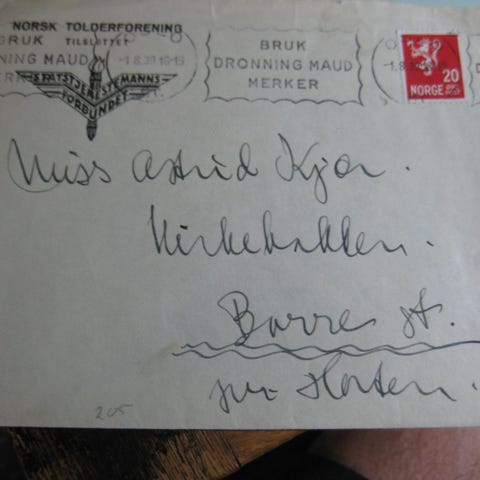 NORSK TOLDERFORENING
TILSLUTTET
STATSTJENESTEMANNS-
FORBUNDET
BRUK
NING MAUD
MERKER
-1.8.39 16-19
BRUK
DRONNING MAUD
MERKER
-1.8.39
20
NORGE
Miss Astrid Kjær.
Kirkebakken.
Borre st.
pr. Horten.
205